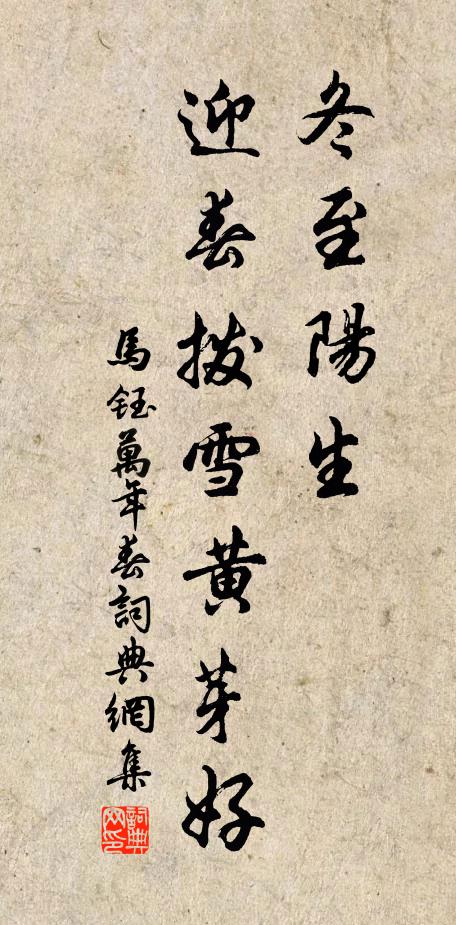 冬至陽生
迎春撥雪黄芽好
馬鈺萬年春詞典網集
詞典网印